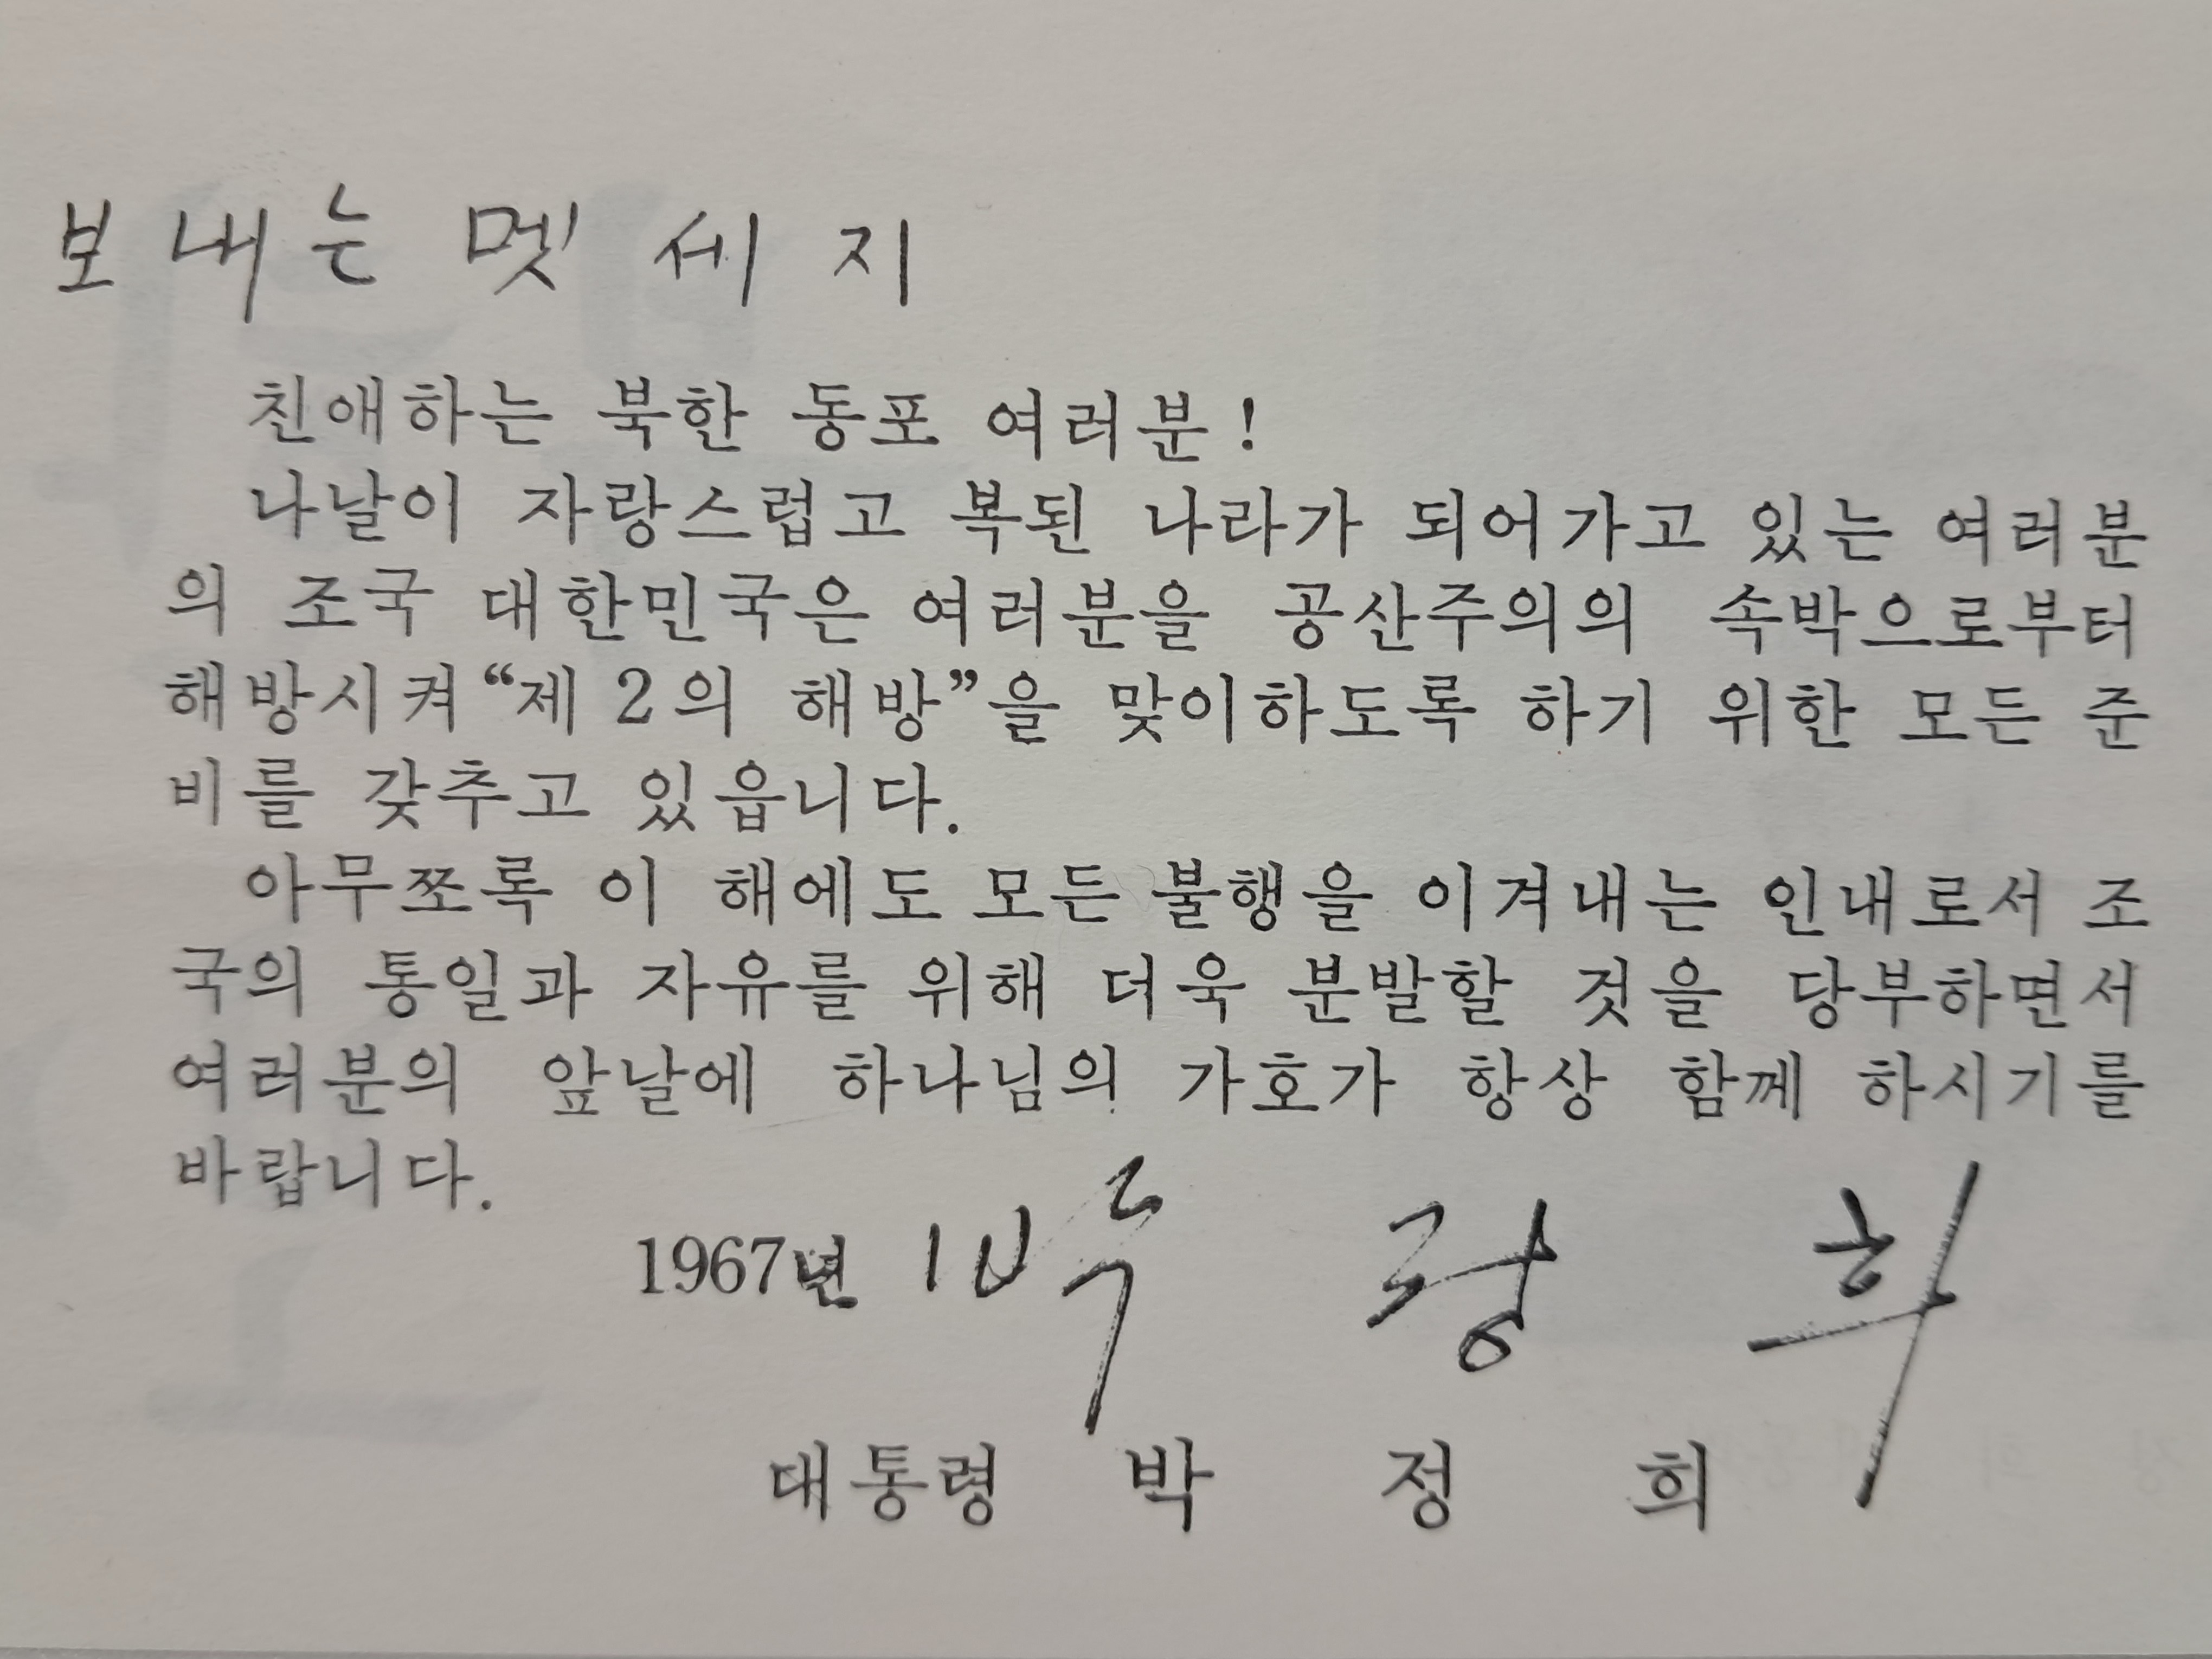 보내는 멧세지
친애하는 북한 동포 여러분!
나날이 자랑스럽고 복된 나라가 되어가고 있는 여러분
의 조국 대한민국은 여러분을 공산주의의 속박으로부터
해방시켜 “제 2의 해방”을 맞이하도록 하기 위한 모든 준
비를 갖추고 있읍니다.
아무쪼록 이 해에도 모든 불행을 이겨내는 인내로서 조
국의 통일과 자유를 위해 더욱 분발할 것을 당부하면서
여러분의 앞날에 하나님의 가호가 항상 함께 하시기를
바랍니다.
1967년
대통령 박 정 희